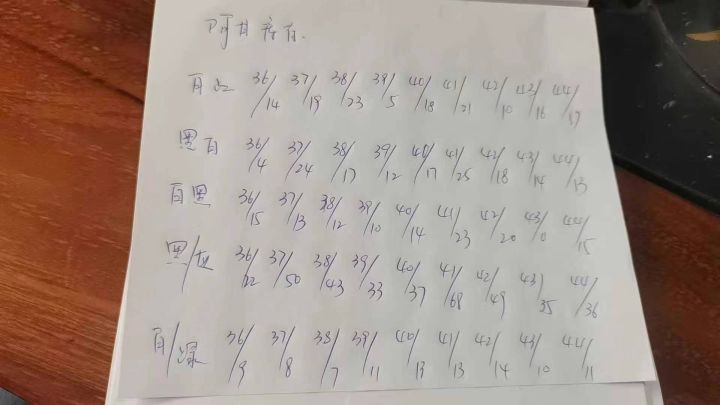 阿甘库存.
白红 36/14 37/19 38/23 39/5 40/18 41/21 42/10 42/16 44/17
黑白 36/4 37/24 38/17 39/12 40/17 41/25 42/18 43/14 44/13
白黑 36/15 37/13 38/12 39/10 40/14 41/23 42/20 43/0 44/15
黑/红 36/22 37/50 38/43 39/33 40/37 41/68 42/49 43/35 44/36
白/绿 36/9 37/8 38/7 39/11 40/13 41/13 42/14 43/10 44/11